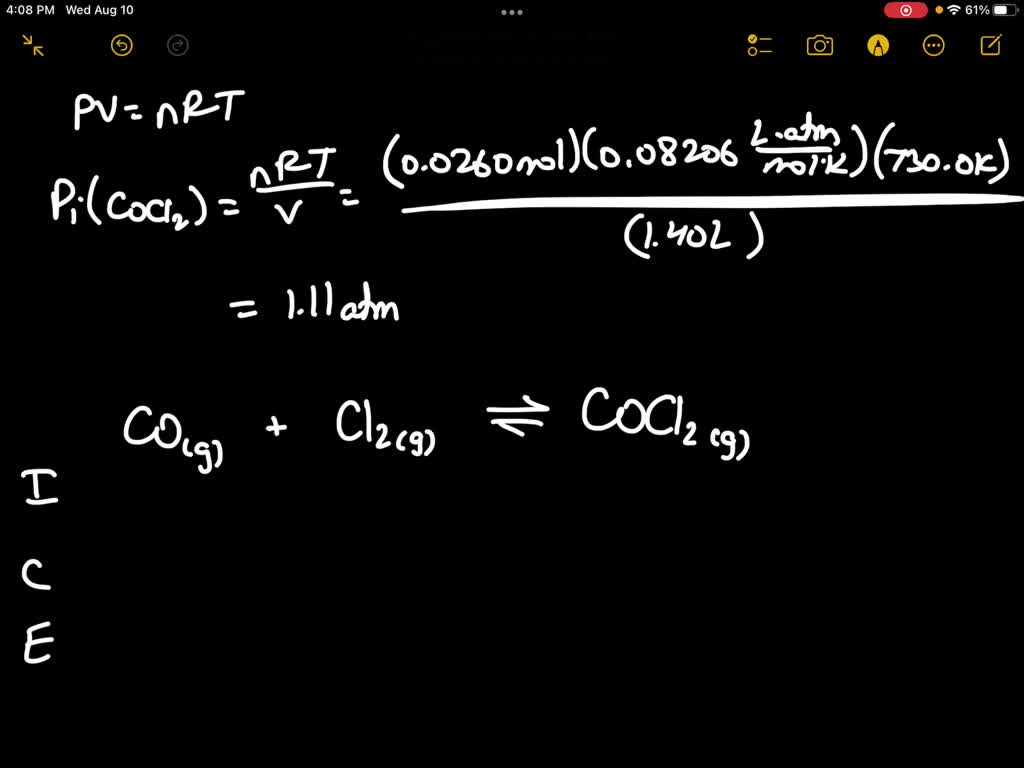 4:08 PM Wed Aug 10
61%
PV = nRT
Pi(COCl2) = nRT/V = (0.0260mol)(0.08206 L.atm/mol.K)(730.0K)/(1.40L)
= 1.11atm
CO(g) + Cl2(g) ⇌ COCl2(g)
I
C
E